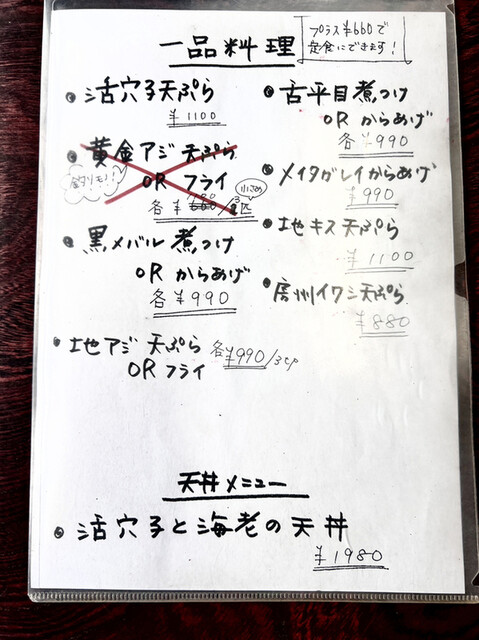 一品料理
プラス¥660で
定食にできます!
• 活穴子天ぷら
¥1100
• 黄金アジ 天ぷら
釣りもの!
OR フライ
小さめ
各¥
• 黒メバル 煮つけ
OR からあげ
各¥990
• 地アジ 天ぷら 各¥990/3cp
OR フライ
• 舌平目煮つけ
OR からあげ
各¥990
• メイタガレイからあげ
¥990
• 地キス天ぷら
¥1100
• 房州イワシ天ぷら
¥880
天丼メニュー
• 活穴子と海老の天丼
¥1980